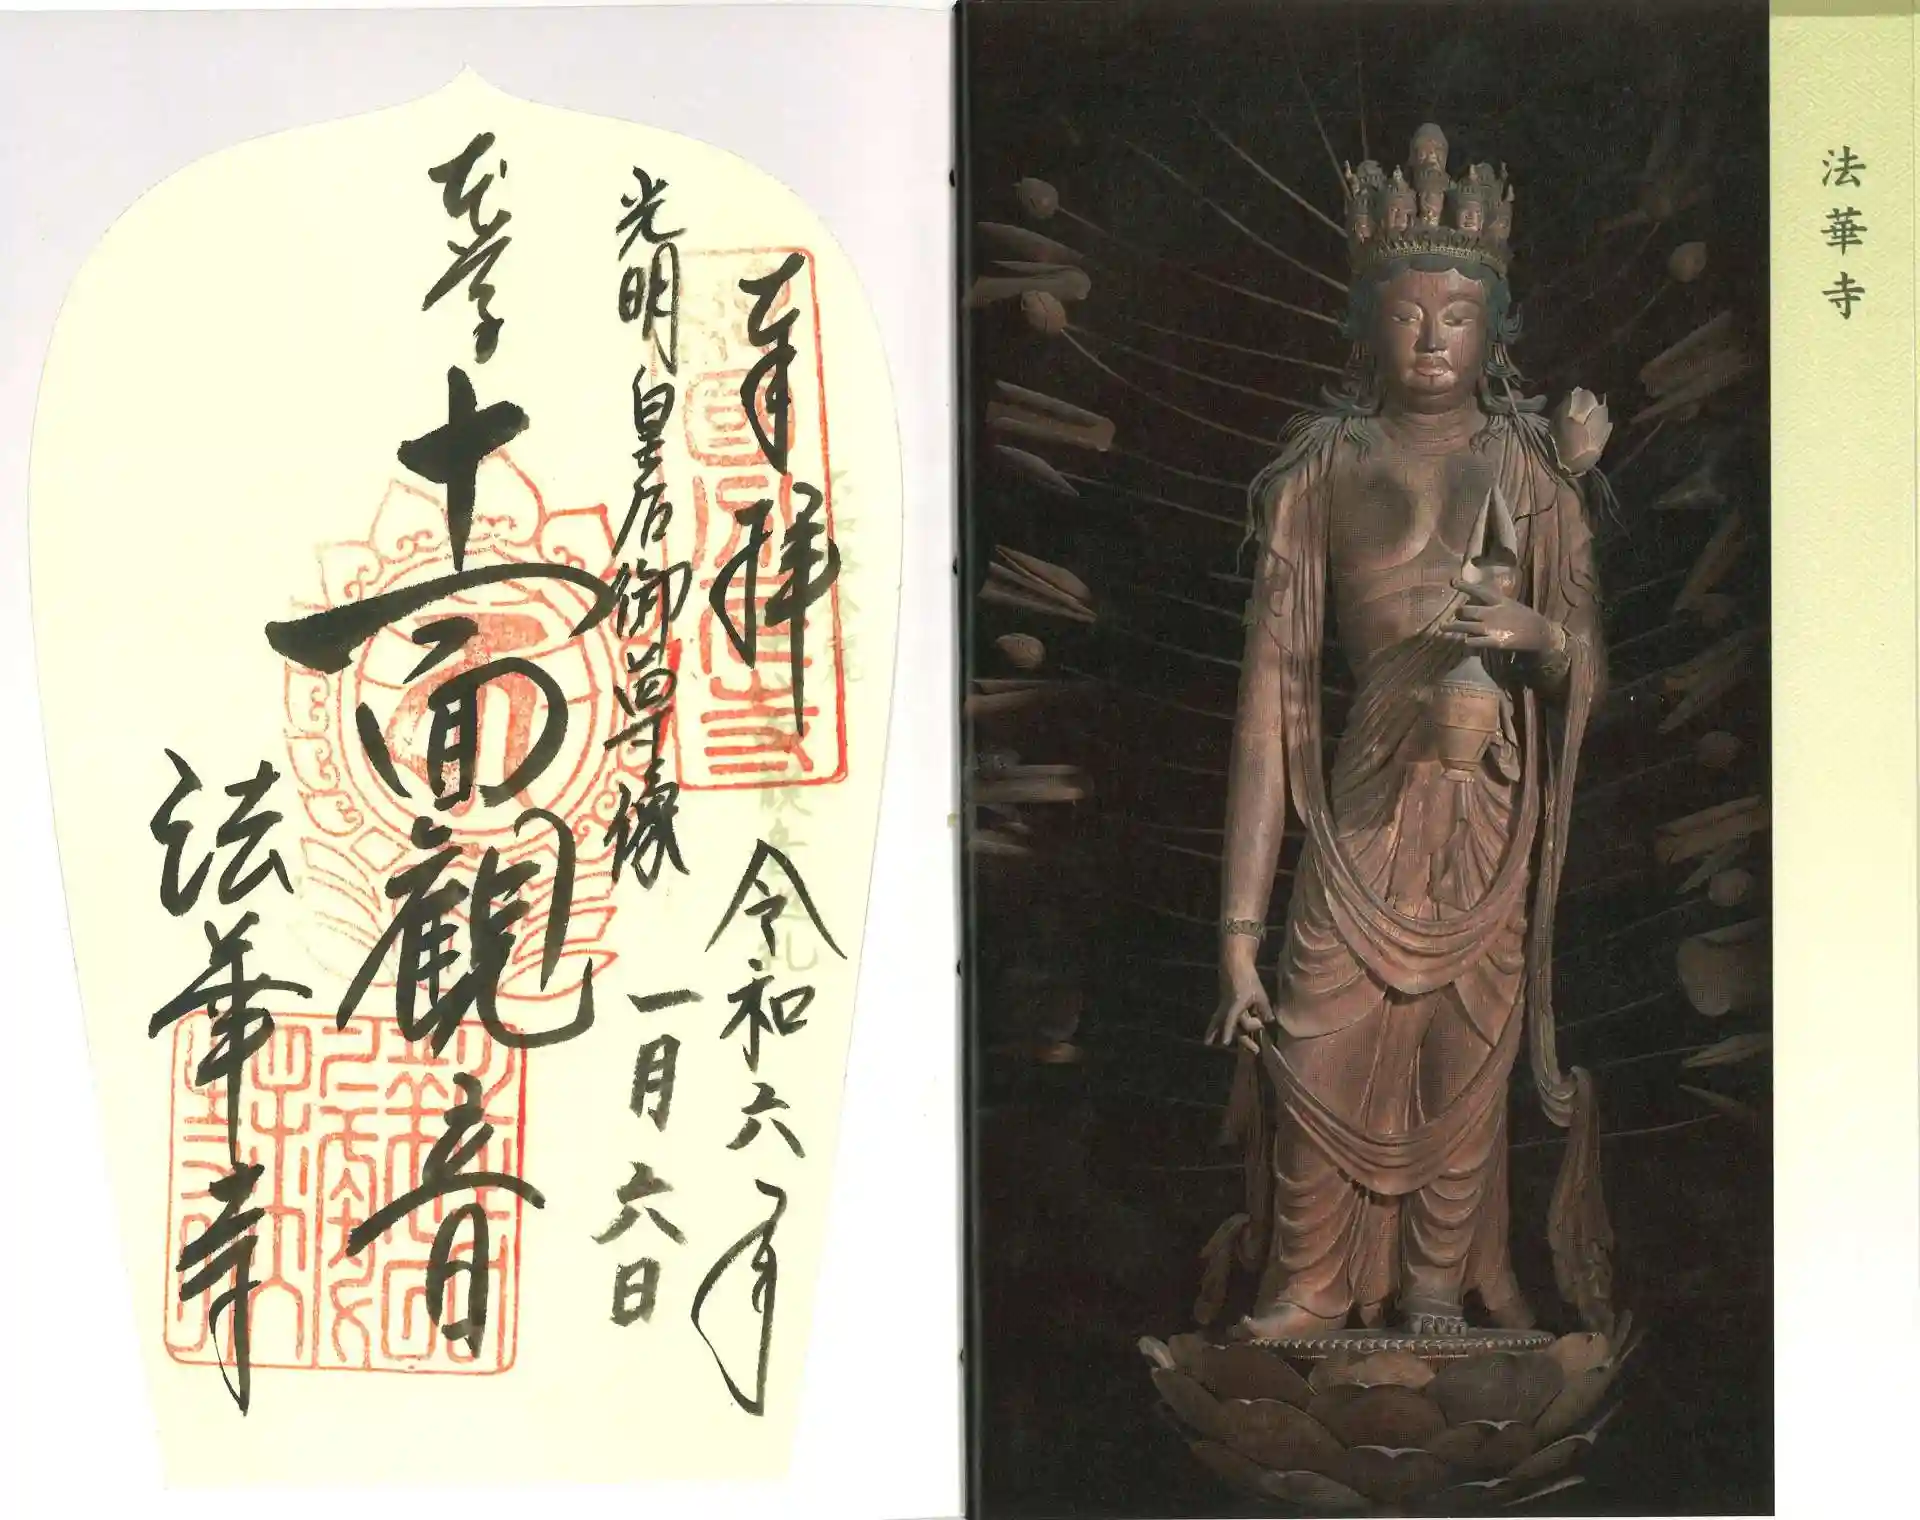 法華寺
奉拝 令和六年
光明皇后御尊像 一月六日
本尊 十一面觀音
法華寺